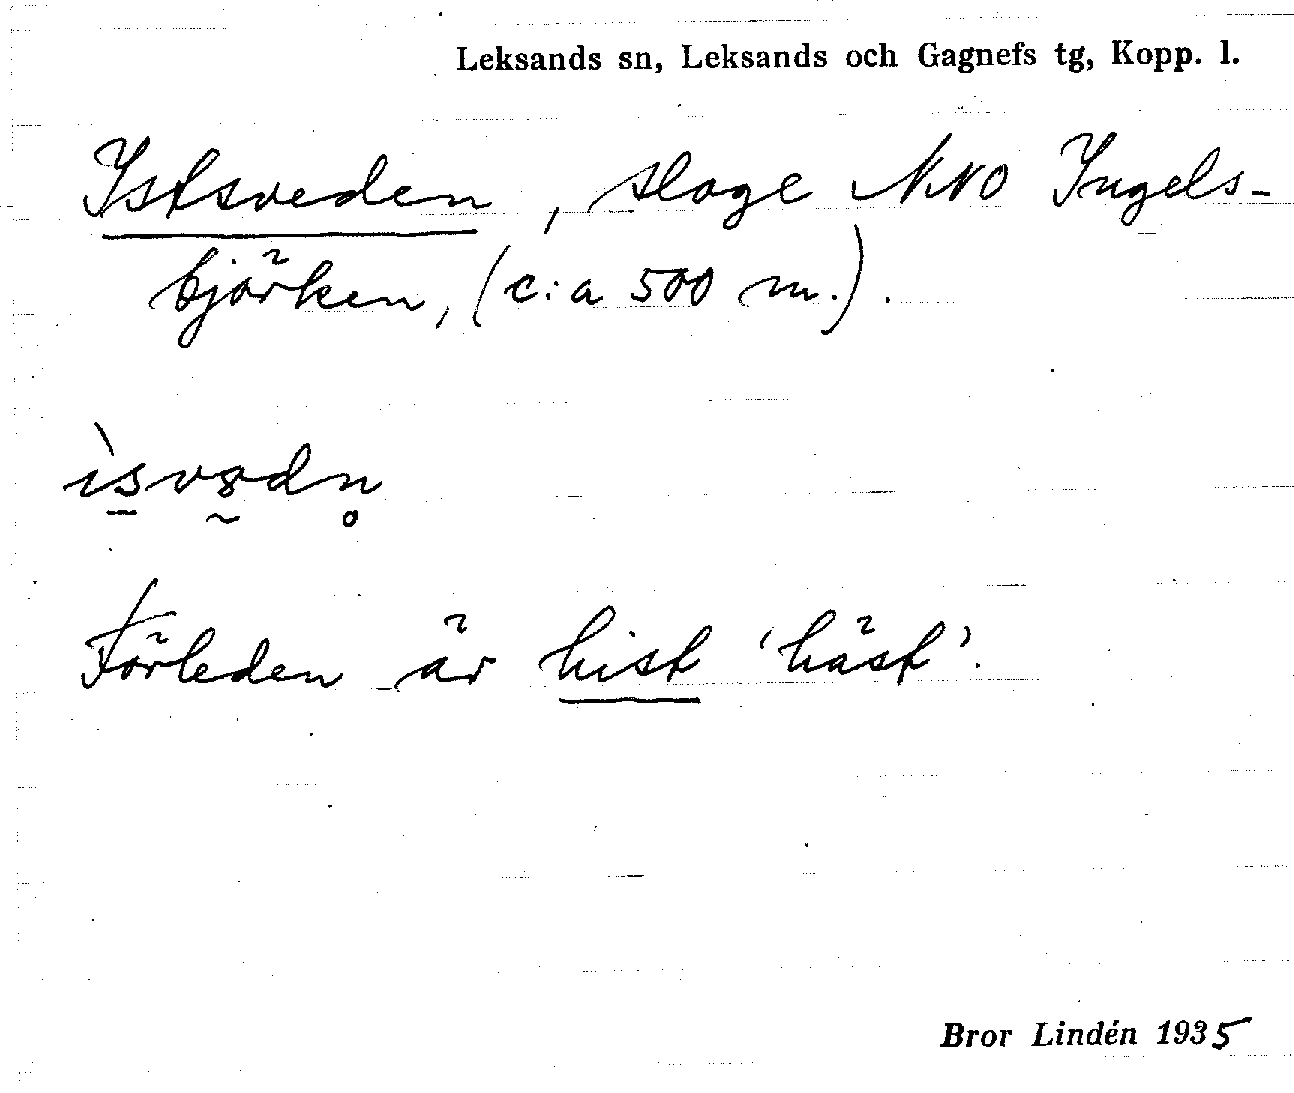 Leksands sn, Leksands och Gagnefs tg, Kopp. l.
Istsveden, sloge NNO Ingels-
björken, (c:a 500 m.).
ìs̱vɞ̰dn̥
Förleden är hist 'häst'.
Bror Lindén 1935